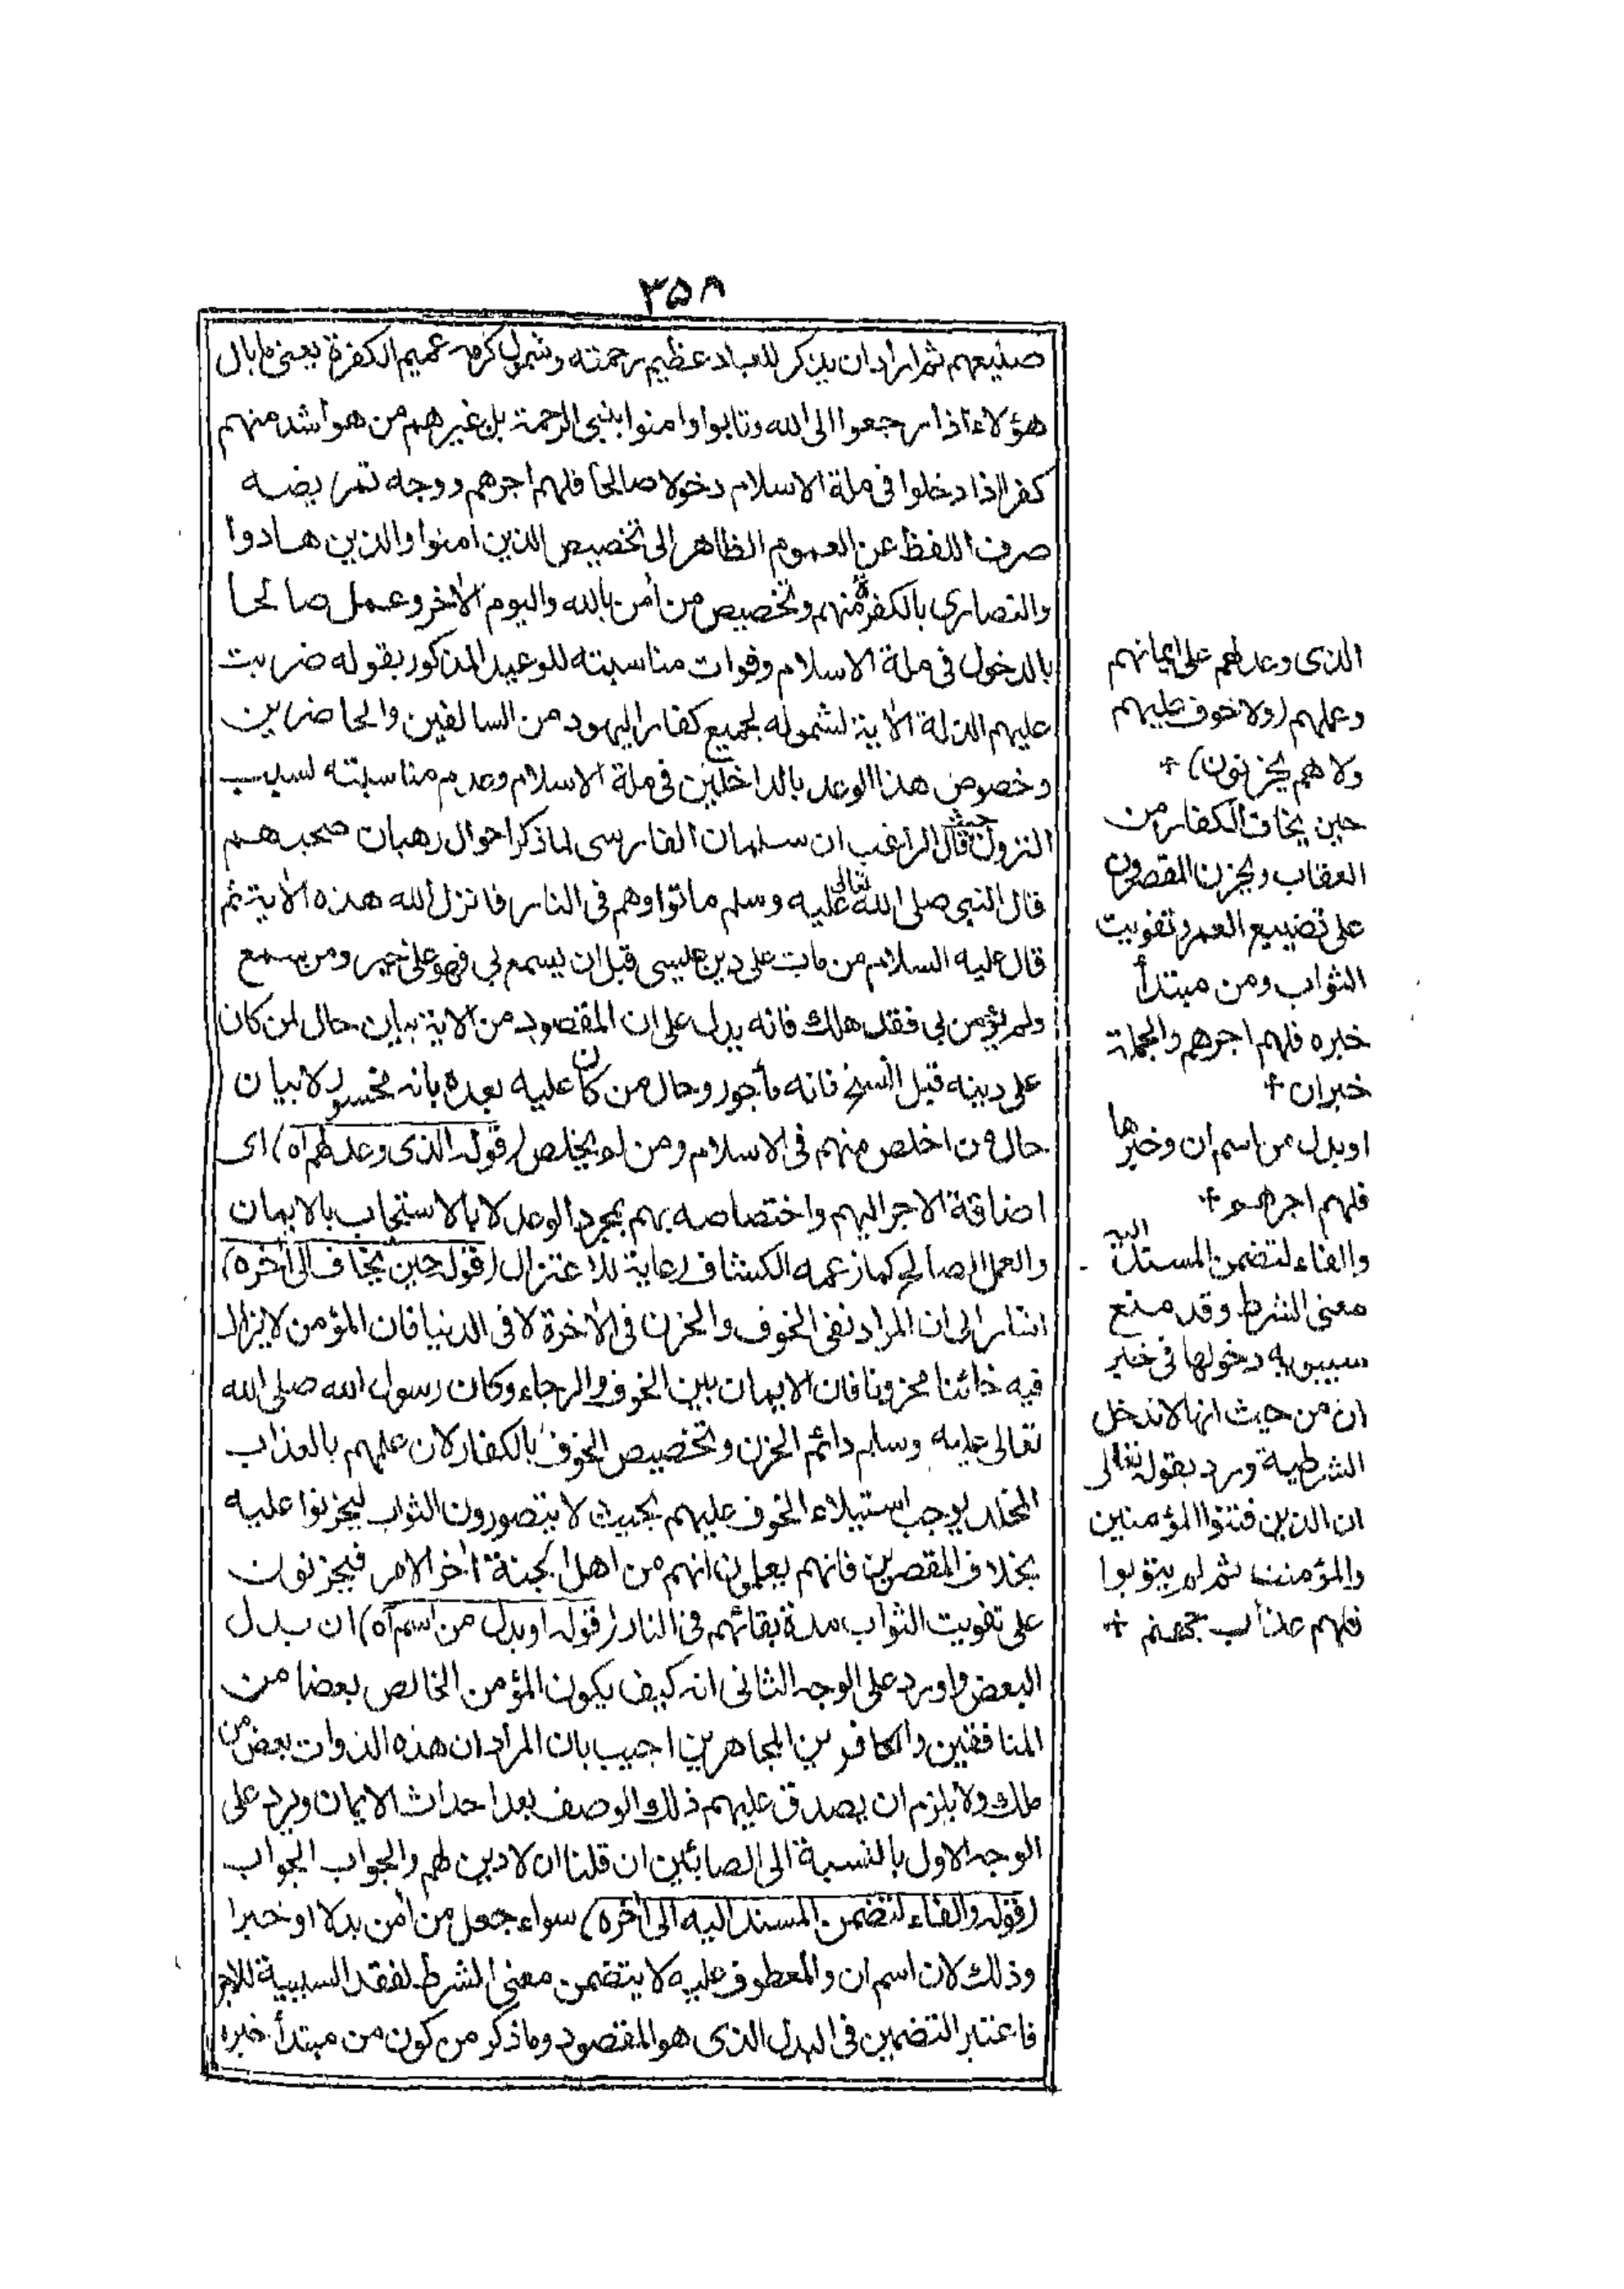 ٣٥٨
صنيعهم ثم اراد ان يذكر للعباد عظيم رحمته وشمول كرمه عميم الكفرة يعنى ما بال
هؤلاء اذا رجعوا الى الله وتابوا وامنوا بنبى الرحمة بل غيرهم من هو اشد منهم
كفرا اذا دخلوا فى ملة الاسلام دخولا صالحا فلهم اجرهم ووجه تمريضه
صرف اللفظ عن العموم الظاهر الى تخصيص الذين امنوا والذين هادوا
والنصارى بالكفرة منهم وتخصيص من أمن بالله واليوم الأخر وعمل صالحا
بالدخول فى ملة الاسلام وفوات مناسبته للوعيد المذكور بقوله ضربت
عليهم الذلة الأية لشموله لجميع كفار اليهود من السالفين والحاضرين
وخصوص هذا الوعد بالداخلين فى ملة الاسلام وعدم مناسبته لسبب
النزول حيث قال الراغب ان سلمان الفارسى لما ذكر احوال رهبان صحبهم
قال النبى صلى الله تعالى عليه وسلم ماتوا وهم فى النار فانزل الله هذه الأية ثم
قال عليه السلام من مات على دين عيسى قبل ان يسمع بى فهو على خير ومن يسمع
ولم يؤمن بى فقد هلك فانه يدل على ان المقصود من الاية بيان حال من كان
على دينه قبل النسخ فانه مأجور وحال من كان عليه بعده بانه مخسور لا بيان
حال من اخلص منهم فى الاسلام ومن لم يخلص (قوله الذى وعد لهم اه) اى
اضافة الاجر اليهم واختصاصه بهم بمجرد الوعد لا بالاستيجاب بالايمان
والعمل الصالح كما زعمه الكشاف رعاية للاعتزال (قوله حين يخاف الى أخره)
اشار الى ان المراد نفى الخوف والحزن فى الأخرة لا فى الدنيا فان المؤمن لا يزال
فيه خائفا محزونا فان الايمان بين الخوف والرجاء وكان رسول الله صلى الله
تعالى عليه وسلم دائم الحزن وتخصيص الخوف بالكفار لان علمهم بالعذاب
المخلد يوجب استيلاء الخوف عليهم بحيث لا يتصورون الثواب ليحزنوا عليه
بخلاف المقصرين فانهم يعلمون انهم من اهل الجنة أخر الامر فيحزنون
على تفويت الثواب مدة بقائهم فى النار (قوله او بدل من اسم أه) ان بدل
البعض واورد على الوجه الثانى انه كيف يكون المؤمن الخالص بعضا من
المنافقين والكافرين المجاهرين اجيب بان المراد ان هذه الذوات بعض من
تلك ولا يلزم ان يصدق عليهم ذلك الوصف بعد احداث الايمان ويرد على
الوجه الاول بالنسبة الى الصابئين ان قلنا ان لا دين لهم والجواب الجواب
(قوله والفاء لتضمن المسند اليه الى أخره) سواء جعل من أمن بدلا او خبرا
وذلك لان اسم ان والمعطوف عليه لا يتضمن معنى الشرط لفقد السببية للاجر
فاعتبر التضمين فى البدل الذى هو المقصود وما ذكر من كون من مبتدأ خبره
الذى وعد لهم على ايمانهم
وعملهم (ولا خوف عليهم
ولا هم يحزنون) +
حين يخاف الكفار من
العقاب ويحزن المقصرون
على تضييع العمر وتفويت
الثواب ومن مبتدأ
خبره فلهم اجرهم والجملة
خبران +
او بدل من اسم ان وخبرها
فلهم اجرهم +
والفاء لتضمن المسند اليه
معنى الشرط وقد منع
سيبويه دخولها فى خبر
ان من حيث انها لا تدخل
الشرطية ورد بقوله تعالى
ان الذين فتنوا المؤمنين
والمؤمنت ثم لم يتوبوا
فلهم عذاب جهنم +